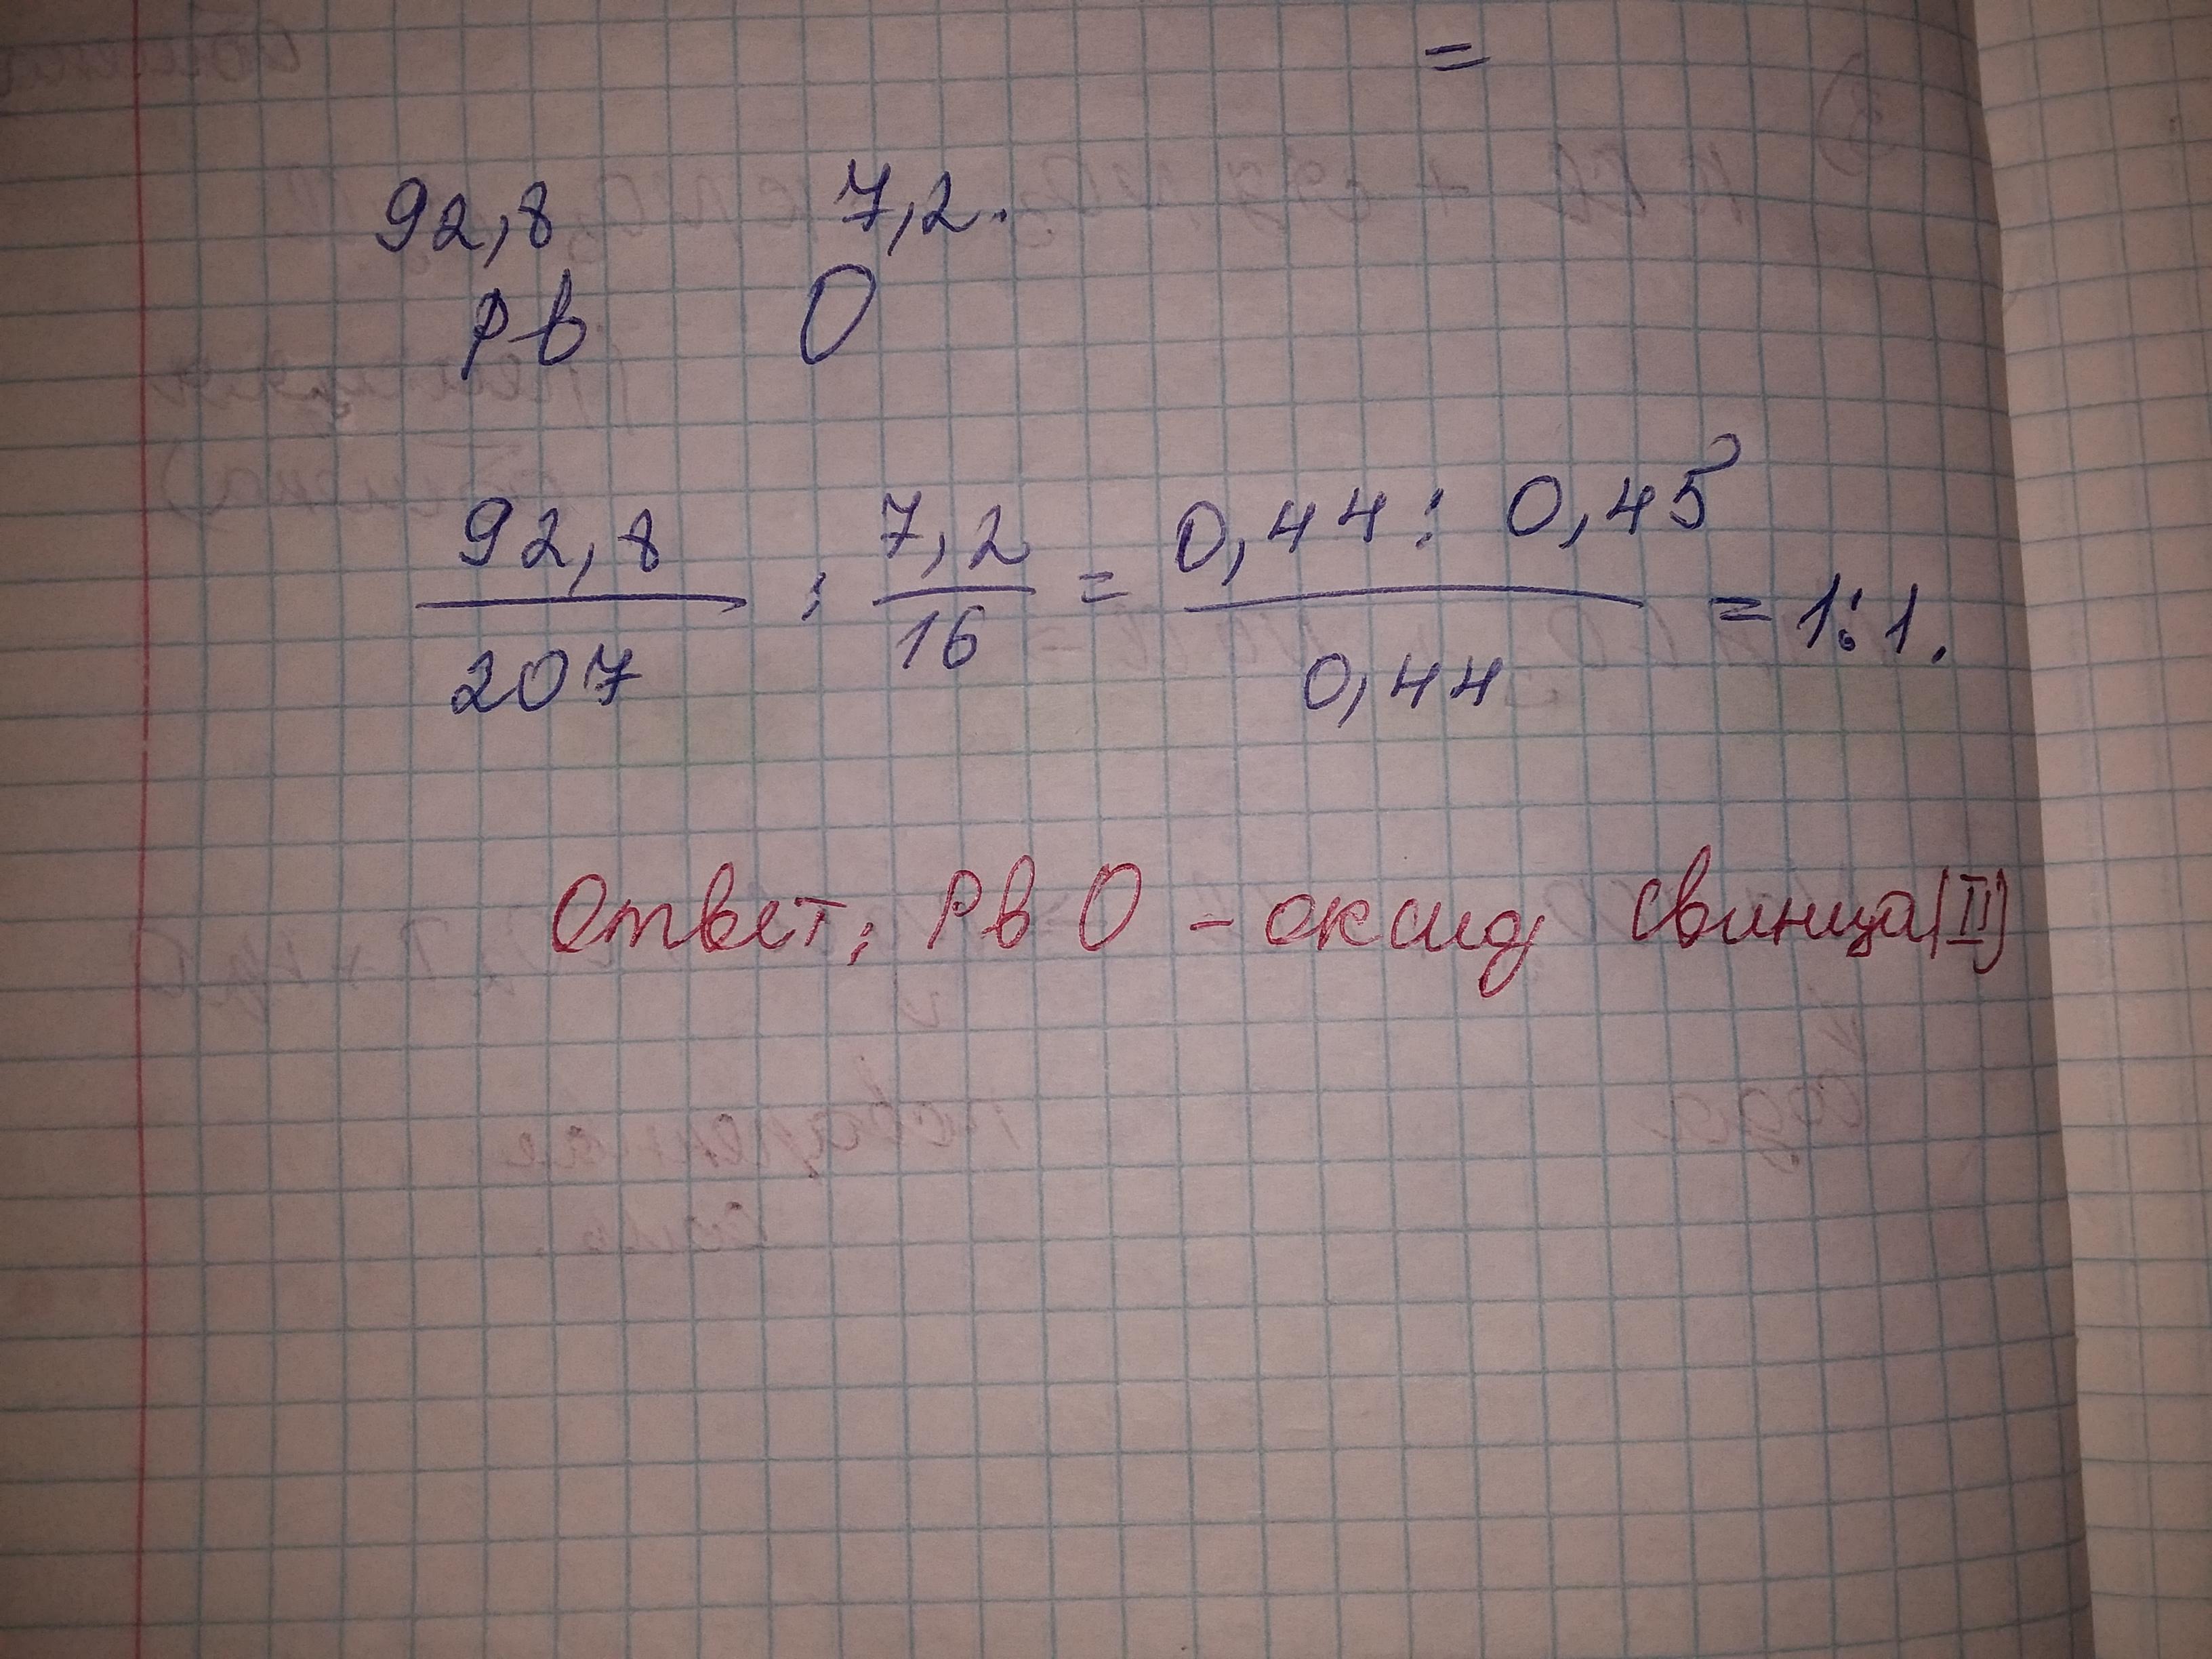 =
92,8 7,2.
Pb O
92,8 / 207 : 7,2 / 16 = 0,44 : 0,45 / 0,44 = 1:1.
Ответ: Pb O - оксид свинца (II)